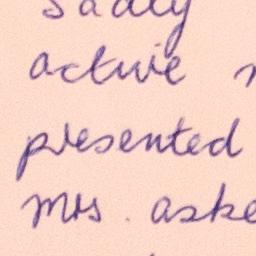 sadly
active
presented
Mrs. aske